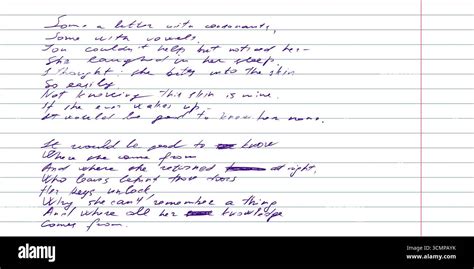 Some a letter with consonants,
Some with vowels.
You couldn't help but noticed her -
She laughed in her sleep.
I thought: she bites into the skin
So easily
Not knowing this skin is mine.
If she ever wakes up -
It would be good to know her name.
It would be good to know
Where she came from
And where she returned at night,
Who leaves behind those doors
Her keys unlock
Why she can't remember a thing
And where all her knowledge
Comes from.
alamy
alamy
Image ID: 3CMPAYK
www.alamy.com